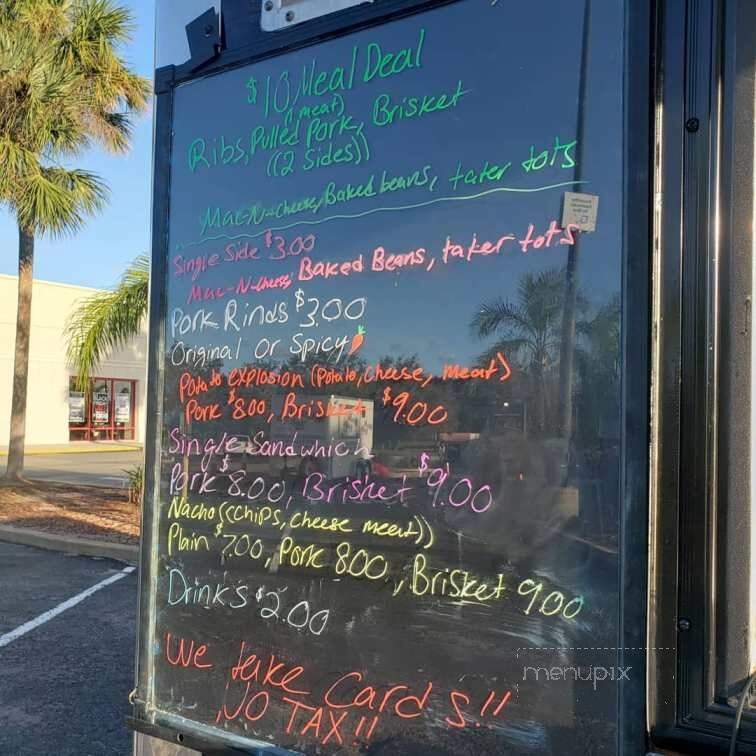 $10 Meal Deal
(1 meat)
Ribs, Pulled Pork, Brisket
((2 Sides))
Mac-N-cheese, Baked beans, tater tots
Single Side $3.00
Mac-N-cheese, Baked Beans, tater tots
Pork Rinds $3.00
Original or Spicy
Potato explosion (Potato, cheese, meat)
Pork $8.00, Brisket $9.00
Single Sandwhich
Pork $8.00, Brisket $9.00
Nacho ((chips, cheese meat))
Plain $7.00, Pork 8.00, Brisket 9.00
Drinks $2.00
We take Cards!!
NO TAX!!
menupix